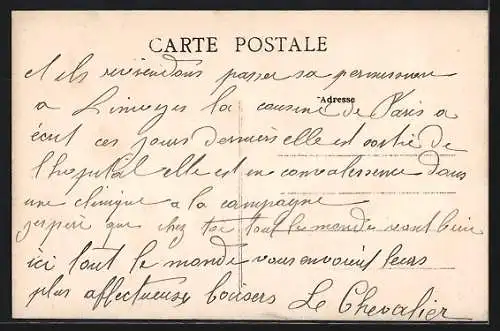 CARTE POSTALE
Adresse
et ils reviendront passer sa permission
a Limoges la cousine de Paris a
écrit ces jours derniers elle est sortie de
l'hopital elle est en convalessence dans
une clinique a la campagne
j'espère que chez toi tout le monde vont bien
ici tout le monde vous envoient leurs
plus affectueux baisers Le Chevalier